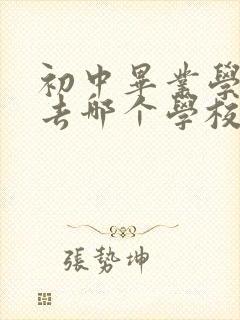 初中畢業學
去哪个學校
張勢坤